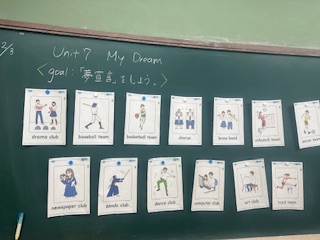 2/3
Unit 7 My Dream
<goal:「夢宣言」をしよう。>
drama club
baseball team
basketball team
chorus
brass band
volleyball team
soccer team
newspaper club
kendo club
dance club
computer club
art club
track team